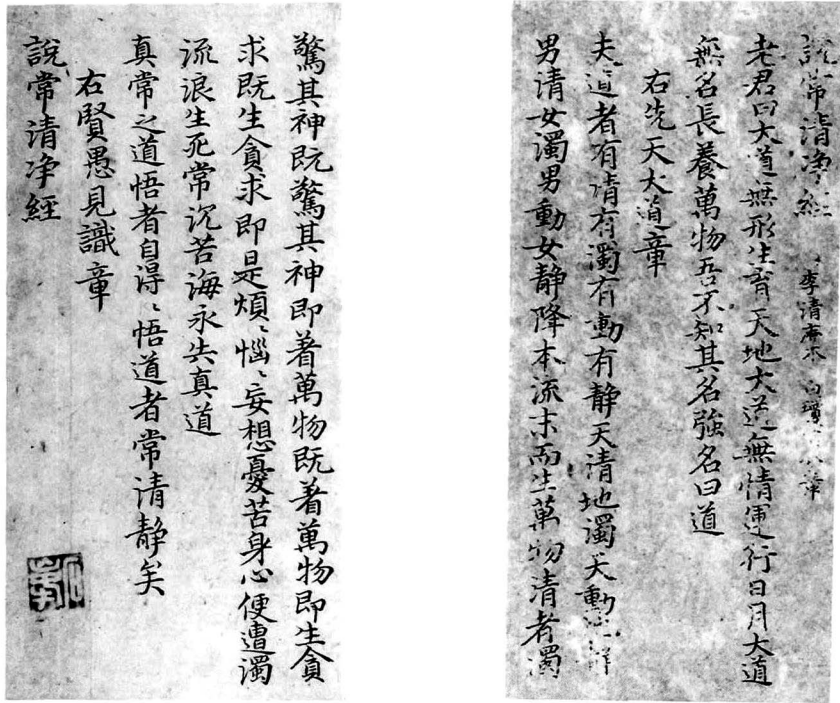 說常清淨經　李清庵本　白
老君曰大道無形生育天地大道無情運行日月大道
無名長養萬物吾不知其名強名曰道
右先天大道章
夫道者有清有濁有動有静天清地濁天動
男清女濁男動女静降本流末而生萬物清者濁
驚其神既驚其神即着萬物既着萬物即生貪
求既生貪求即是煩〻惱〻妄想憂苦身心便遭濁
流浪生死常沉苦海永失真道
真常之道悟者自得〻悟道者常清静矣
右賢愚見識章
說常清净經